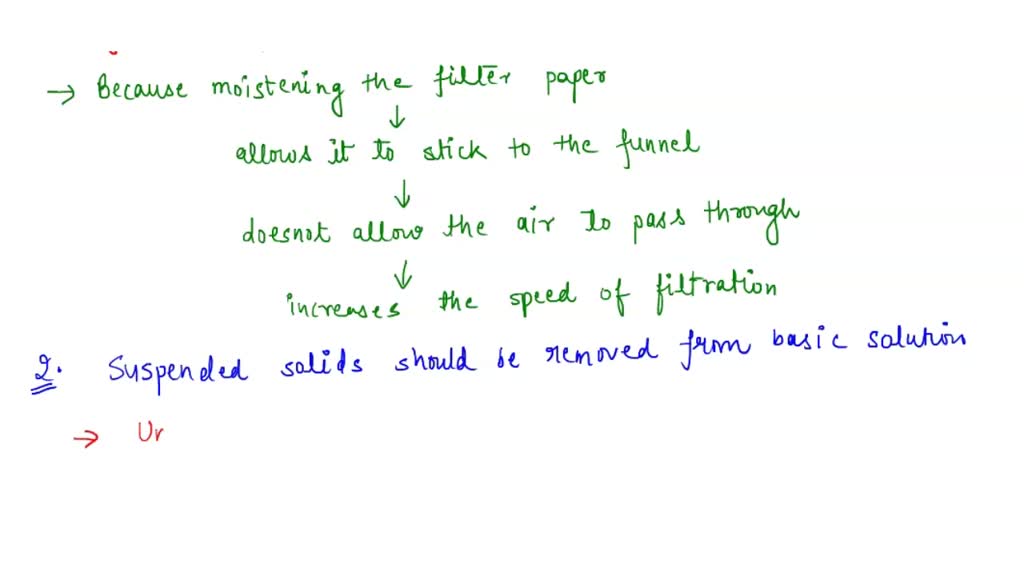 → Because moistening the filter paper
↓
allows it to stick to the funnel
↓
doesnot allow the air to pass through
↓
increases the speed of filtration
2. Suspended solids should be removed from basic solution
→ Ur